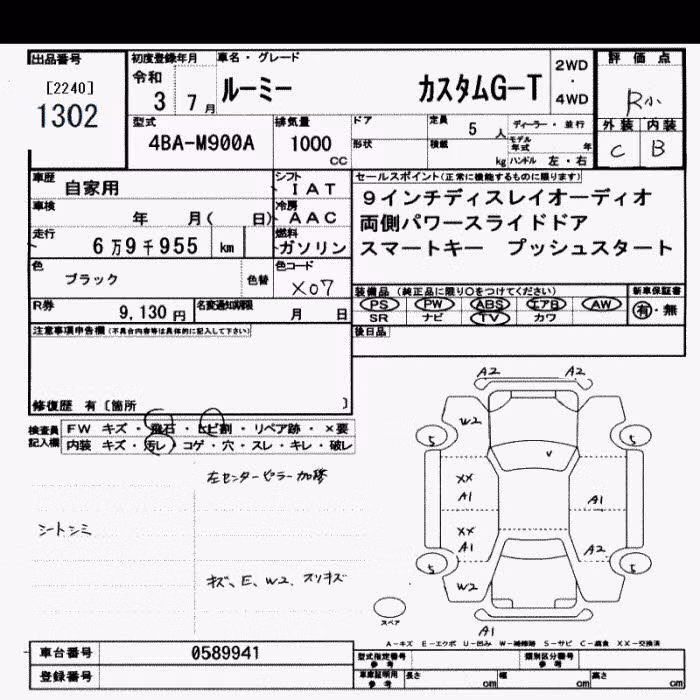 出品番号 初度登録年月 車名・グレード 2WD ・ 4WD 評価点
[2240] 令和
1302 3 7月 ルーミー カスタムG-T R小
型式 排気量 ドア 定員 5人 ディーラー・並行 外装 内装
4BA-M900A 1000 cc 形状 積載 kg モデル年式 年 ハンドル 左・右 C B
車歴 自家用 シフト IAT セールスポイント(正常に機能するものに限ります)
車検 年 月( 日) 冷房 AAC 9インチディスレイオーディオ
両側パワースライドドア
走行 6万9千955 km 燃料 ガソリン スマートキー プッシュスタート
色 ブラック 色替 色コード X07
装備品(純正品に限り○をつけてください) 新車保証書
PS PW ABS エアB AW 有・無
R券 9,130円 名変通知期限 月 日 SR ナビ TV カワ
注意事項申告欄(不具合内容等は具体的に記入して下さい) 後日品
修復歴 有〔箇所 〕
検査員記入欄 FW キズ・飛石・ヒビ割・リペア跡・×要
内装 キズ・汚レ・コゲ・穴・スレ・キレ・破レ
左センターピラー加修
シートシミ
キズ、E、W2、スリキズ
A2 A2
W2
5 5
V
XX
A1 A1
XX
A1 A2
5 5
W2
スペア
A1
A-キズ E-エクボ U-凹み W-補修跡 S-サビ C-腐食 XX-交換済
車台番号 0589941 型式指定番号 参考 類別区分番号 参考
登録番号 車庫証明用 参考 長さ cm 幅 cm 高さ cm